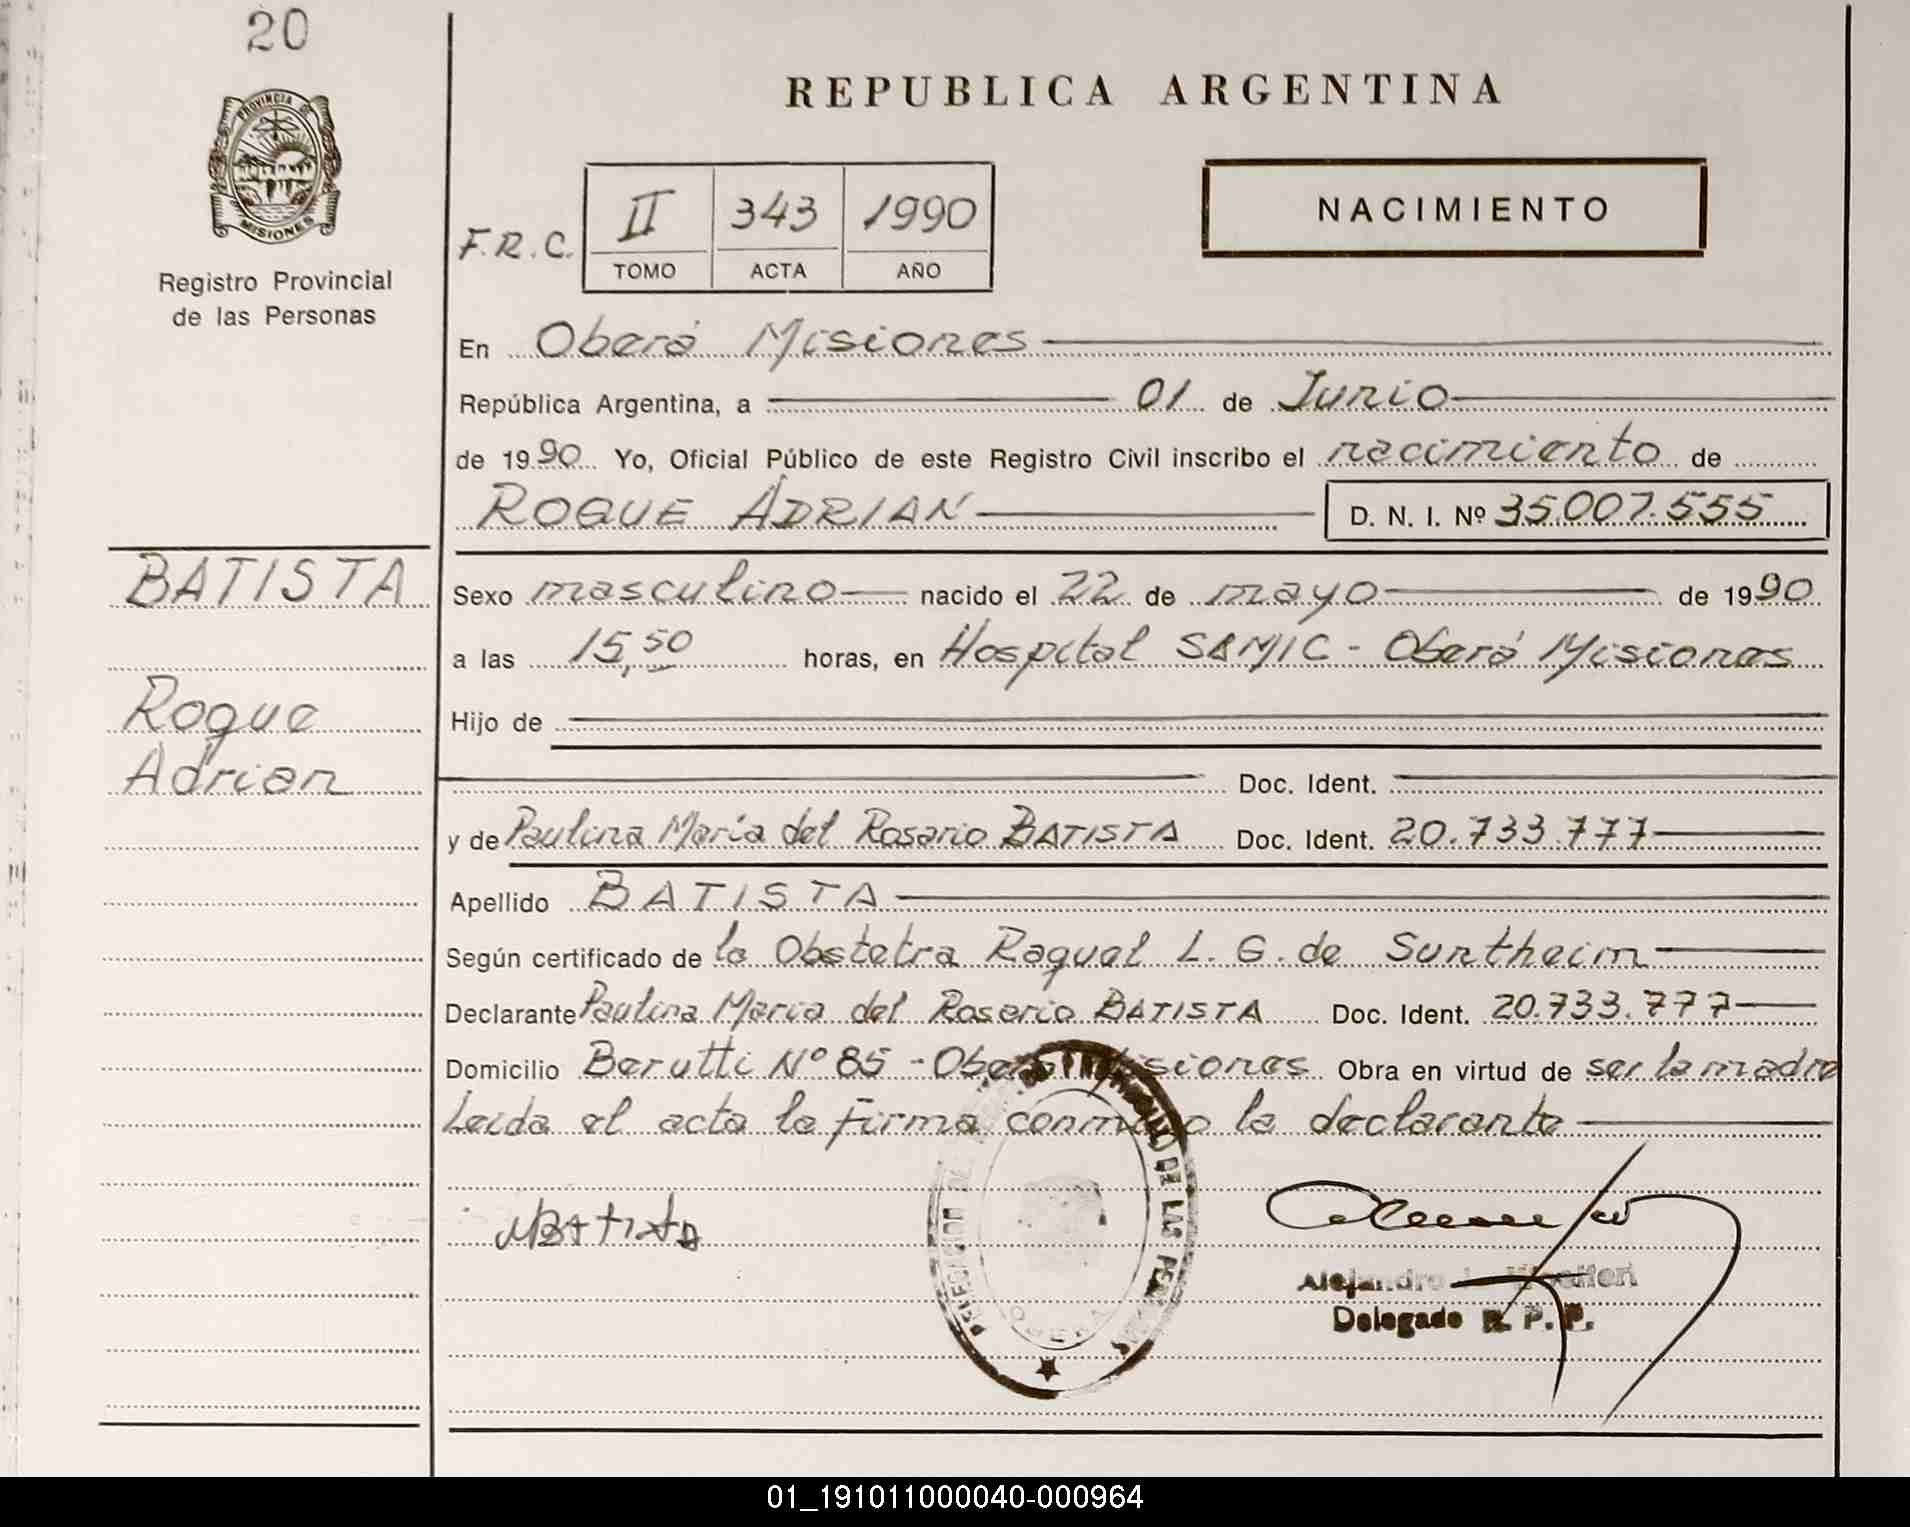 20
PROVINCIA DE
MISIONES
Registro Provincial
de las Personas
REPUBLICA ARGENTINA
F.R.C.
II 343 1990
TOMO ACTA AÑO
NACIMIENTO
En Oberá Misiones
República Argentina, a 01 de Junio
de 1990 Yo, Oficial Público de este Registro Civil inscribo el nacimiento de
ROQUE ADRIAN D. N. I. Nº 35.007.555
BATISTA
Roque
Adrian
Sexo masculino nacido el 22 de mayo de 1990
a las 15,50 horas, en Hospital SAMIC - Oberá Misiones
Hijo de
Doc. Ident.
y de Paulina María del Rosario BATISTA Doc. Ident. 20.733.777
Apellido BATISTA
Según certificado de la Obstetra Raquel L. G. de Suntheim
Declarante Paulina María del Rosario BATISTA Doc. Ident. 20.733.777
Domicilio Berutti Nº 85 - Oberá Misiones Obra en virtud de ser la madre
Leida el acta la firma conmigo la declarante
DELEGACION DE LAS
OBERA
Alejandro
Delegado R. P. P.
01_191011000040-000964